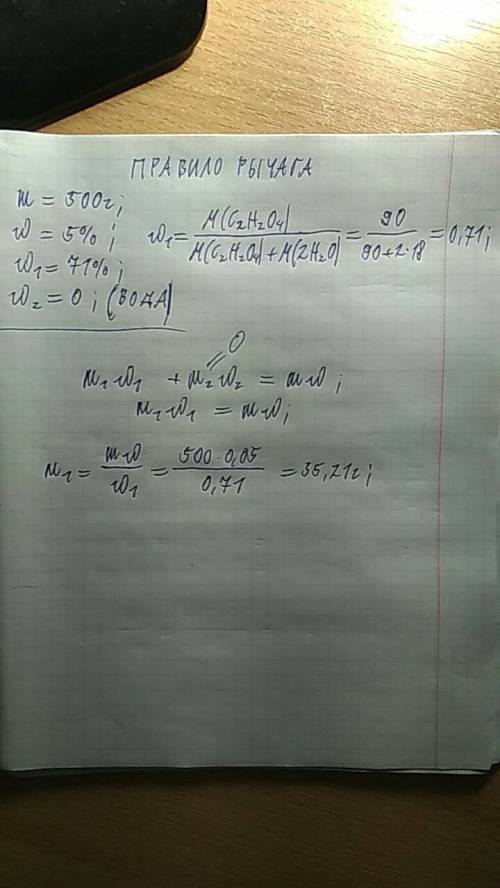 ПРАВИЛО РЫЧАГА
m = 500г;
w = 5% ;
w₁ = 71% ;
w₂ = 0 ; (ВОДА)
w₁ = M(C₂H₂O₄) / M(C₂H₂O₄) + M(2H₂O) = 90 / 90+2·18 = 0,71;
0
m₁w₁ + m₂w₂ = mw ;
m₁w₁ = mw;
m₁ = mw / w₁ = 500·0,05 / 0,71 = 35,21г;